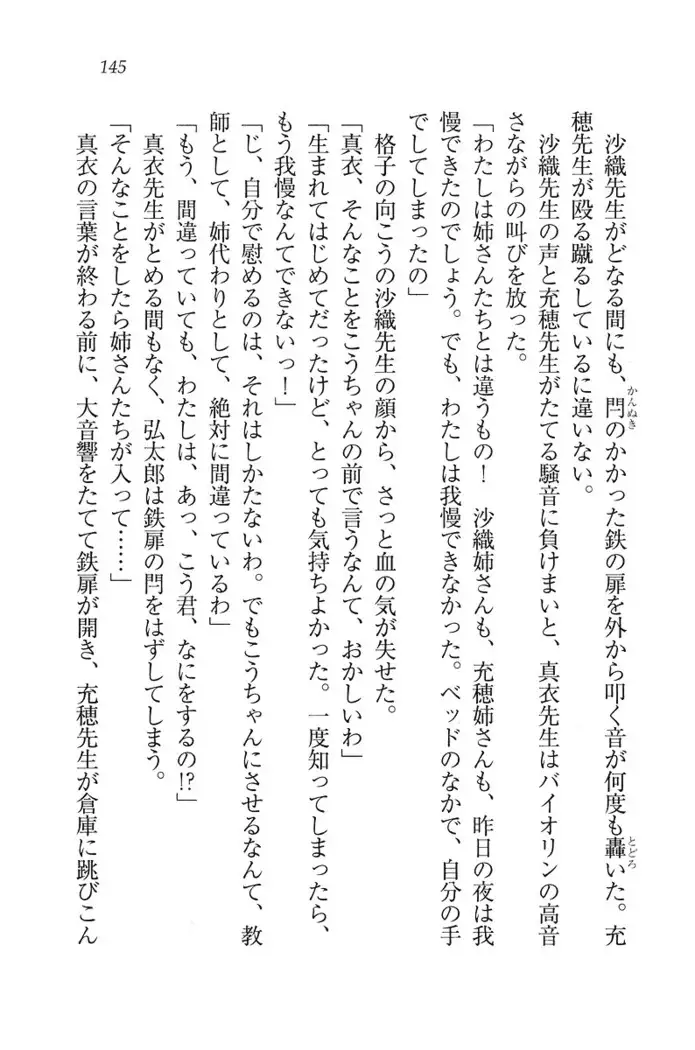 145
沙織先生がどなる間にも、閂のかかった鉄の扉を外から叩く音が何度も轟いた。充
穂先生が殴る蹴るしているに違いない。
沙織先生の声と充穂先生がたてる騒音に負けまいと、真衣先生はバイオリンの高音
さながらの叫びを放った。
「わたしは姉さんたちとは違うもの！　沙織姉さんも、充穂姉さんも、昨日の夜は我
慢できたのでしょう。でも、わたしは我慢できなかった。ベッドのなかで、自分の手
でしてしまったの」
格子の向こうの沙織先生の顔から、さっと血の気が失せた。
「真衣、そんなことをこうちゃんの前で言うなんて、おかしいわ」
「生まれてはじめてだったけど、とっても気持ちよかった。一度知ってしまったら、
もう我慢なんてできないっ！」
「じ、自分で慰めるのは、それはしかたないわ。でもこうちゃんにさせるなんて、教
師として、姉代わりとして、絶対に間違っているわ」
「もう、間違っていても、わたしは、あっ、こう君、なにをするの!?」
真衣先生がとめる間もなく、弘太郎は鉄扉の閂をはずしてしまう。
「そんなことをしたら姉さんたちが入って……」
真衣の言葉が終わる前に、大音響をたてて鉄扉が開き、充穂先生が倉庫に跳びこん